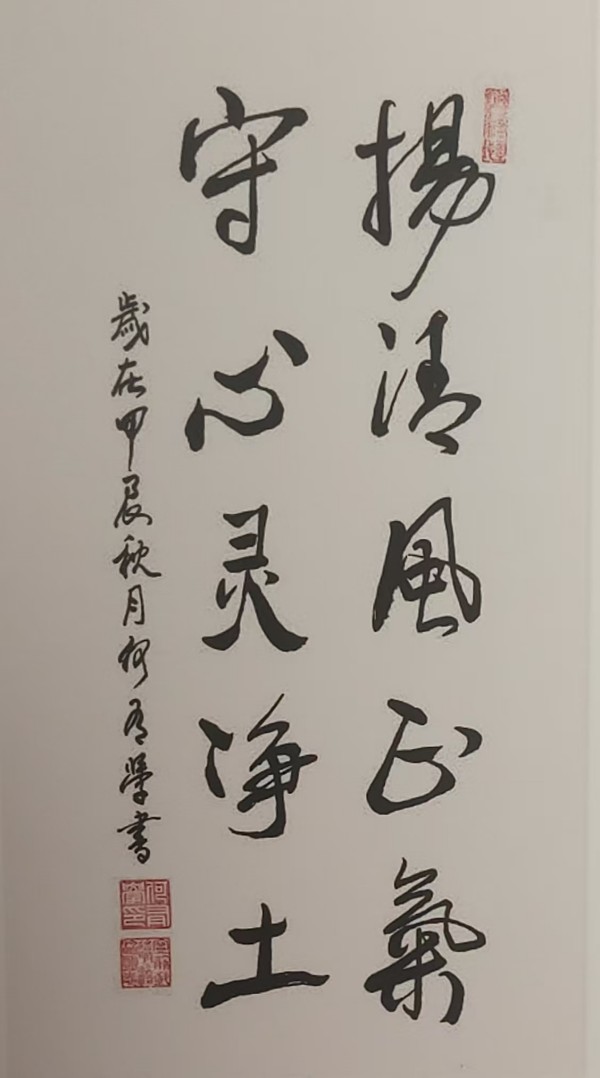 揚清風正氣
守心灵净土
歲在甲辰秋月何有學書